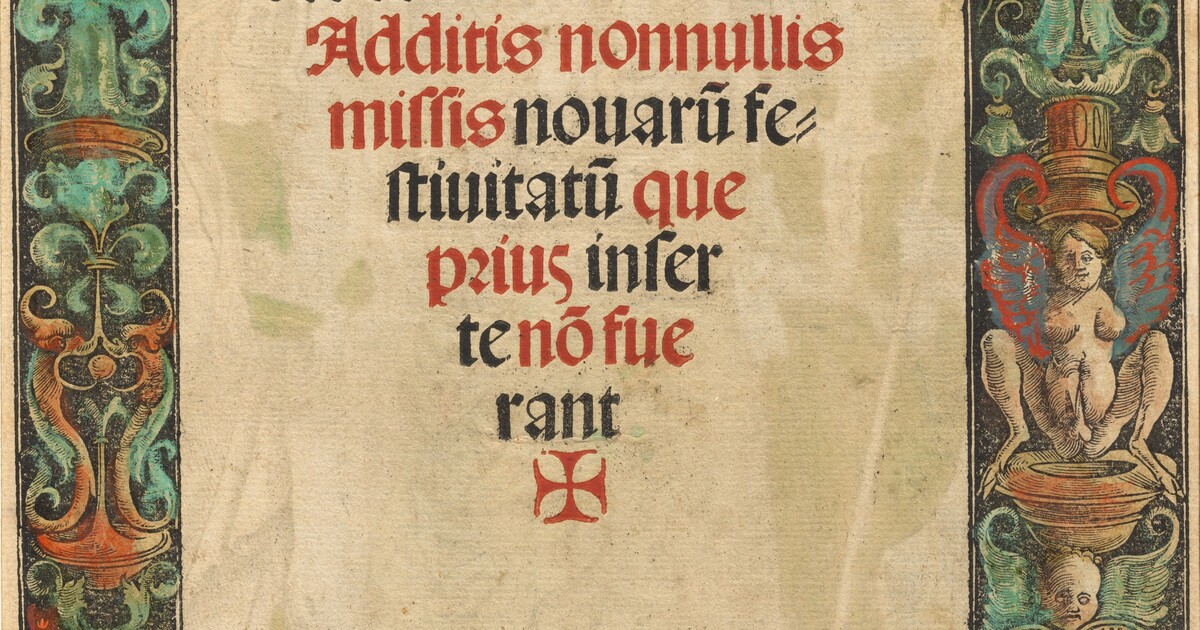 Additis nonnullis
miſſis nouarū fe⸗
ſtiuitatū que
prius inſer
te nō fue
rant